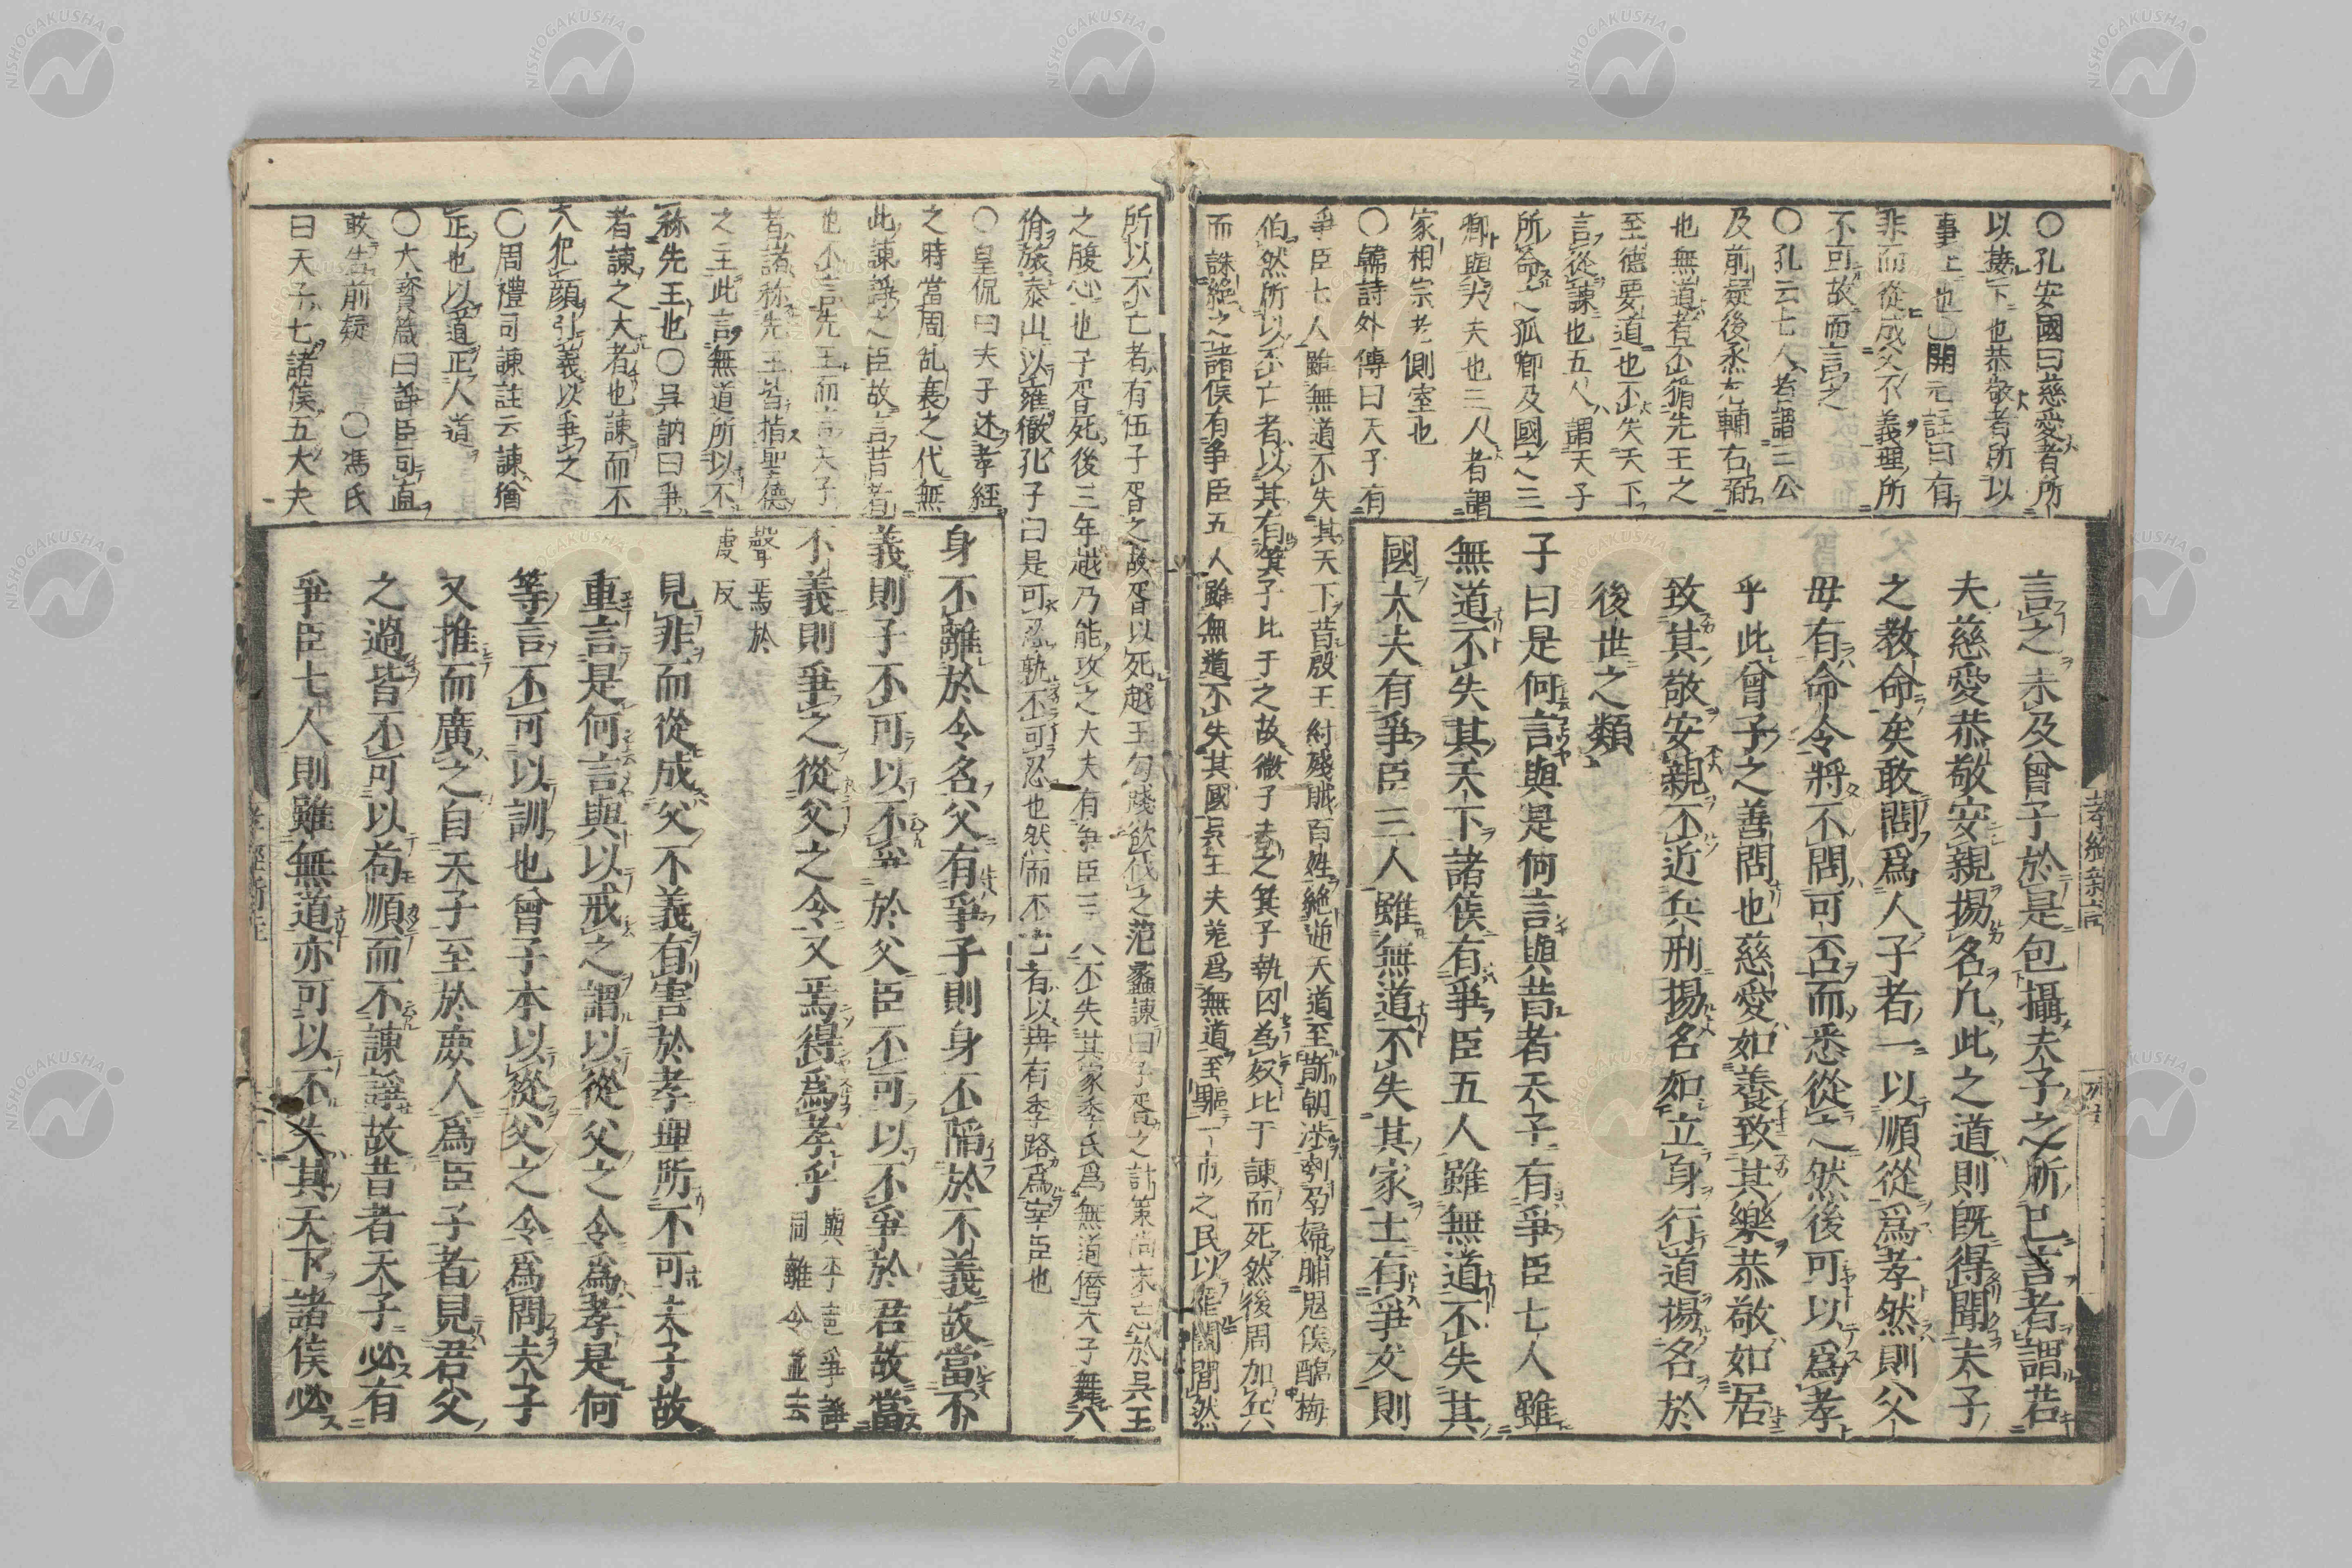 ○孔安國曰慈愛者所
以接下也恭敬者所以
事上也○開元註曰有
非而從成父不義理所
不可故而言之
○孔云七人者謂三公
及前疑後丞左輔右弼
也無道者不循先王之
至德要道也不失天下
言從諫也五人謂天子
所命之孤卿及國之三
卿與大夫也三人者謂
家相宗老側室也
○韓詩外傳曰天子有
爭臣七人雖無道不失其天下昔殷王紂殘賊百姓絶逆天道至斮朝涉刳孕婦脯鬼侯醢梅
伯然所以不亡者以其有箕子比干之故微子去之箕子執囚為奴比干諫而死然後周加兵
而誅絶之諸侯有爭臣五人雖無道不失其國吳王夫差爲無道至驅一市之民以葬闔閭然
言之未及曾子於是包攝夫子之所已言者謂若
夫慈愛恭敬安親揚名凡此之道則既得聞夫子
之教命矣敢問爲人子者一以順從爲孝然則父
母有命令將不問可否而悉從之然後可以爲孝
乎此曾子之善問也慈愛如養致其樂恭敬如居
致其敬安親不近兵刑揚名如立身行道揚名於
後世之類
子曰是何言與是何言與昔者天子有爭臣七人雖
無道不失其天下諸侯有爭臣五人雖無道不失其
國大夫有爭臣三人雖無道不失其家士有爭友則
所以不亡者有伍子胥之故胥以死越王勾踐欲伐之范蠡諫曰子胥之計策尚未忘於吳王
之腹心也子胥死後三年越乃能攻之大夫有爭臣三人不失其家季氏爲無道僭天子舞八
佾旅泰山以雍徹孔子曰是可忍孰不可忍也然而不亡者以冉有季路爲宰臣也
○皇侃曰夫子述孝經
之時當周乱衰之代無
此諫諍之臣故言昔者
也不言先王而言天子
者諸称先王皆指聖德
之主此言無道所以不
称先王也○吳訥曰爭
者諫之大者也諫而不
入犯顔引義以爭之
○周禮司諫註云諫猶
正也以道正人道
○大寶箴曰諍臣司直
敢告前疑　○馮氏
曰天子七諸侯五大夫
身不離於令名父有爭子則身不陷於不義故當不
義則子不可以不爭於父臣不可以不爭於君故當
不義則爭之從父之令又焉得爲孝乎 與平音爭諍
同離令並去
聲焉於
虔反
見非而從成父不義有害於孝理所不可夫子故
重言是何言與以戒之謂以從父之令爲孝是何
等言不可以訓也曾子本以從父之令爲問夫子
又推而廣之自天子至於庶人爲臣子者見君父
之過皆不可以苟順而不諫諍故昔者天子必有
爭臣七人則雖無道亦可以不失其天下諸侯必